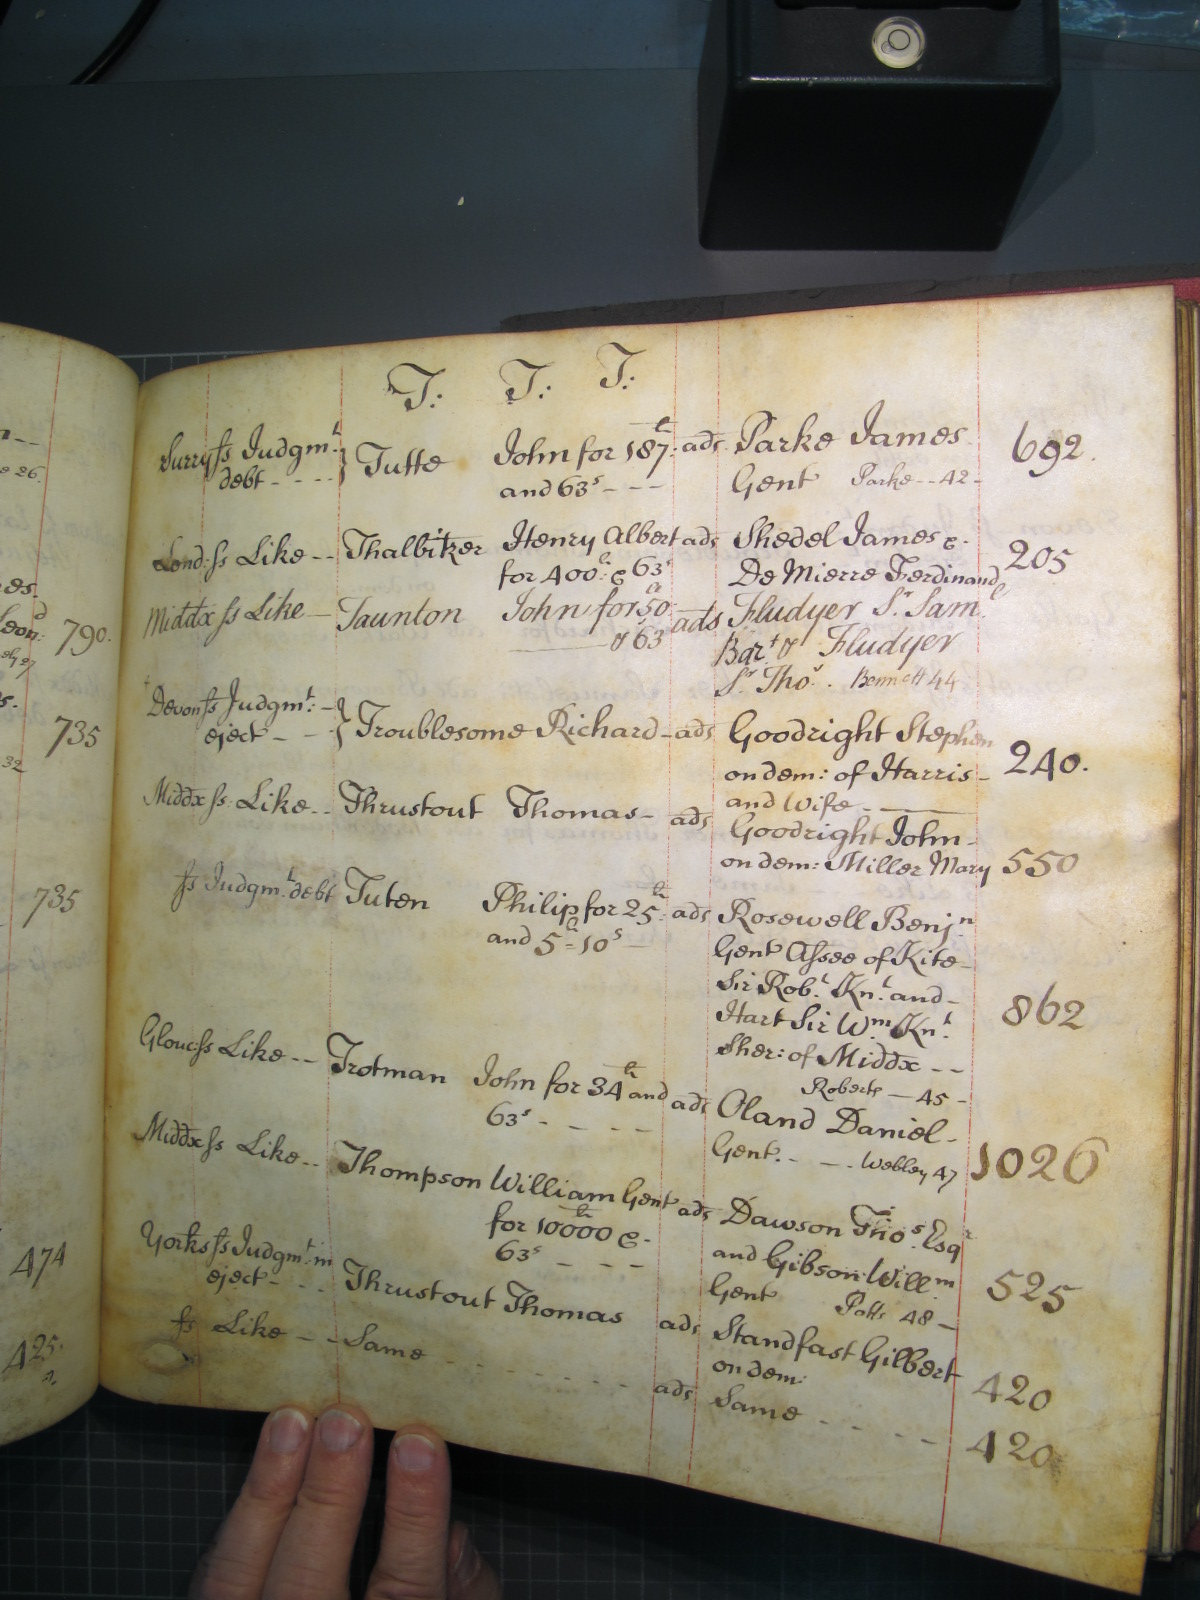 T: T: T:
Surry ſs Judgmt. John for 187li. ads Parke James 692.
debt - - - - } Tutte and 63s - - - Gent Parke - - 42 -
Lond: ſs Like - - Thalbitzer Henry Albert ads Shedel James &
for 400li: & 63s De Mierre Ferdinand 205
Middx ſs Like - Taunton John for 50li ads Fludyer Sr. Saml
& 63 Bart & Fludyer
Sr. Thos. Bennett 44
Devon ſs Judgmt: -
eject - - - } Troublesome Richard - ads Goodright Stephen
on dem: of Harris - 240.
and Wife - -
Middx ſs: Like - - Thrustout Thomas - ads Goodright John -
on dem: Miller Mary 550
ſs Judgmt. debt Tuten Philip for 25li: ads Rosewell Benjn
and 5li = 10s - Gent Assee of Kite -
Sir Robt. Knt. and - 862
Hart Sir Wm Knt.
Sher: of Middx - -
Roberts - 45 -
Glouc ſs Like - - Trotman John for 34li and ads Oland Daniel -
63s - - - - Gent. - - - Webley 47 1026
Middx ſs Like - - Thompson William Gent ads Dawson Thos. Esqr
for 10000li & - and Gibson Willm 525
63s - - - Gent Potts 48 -
Yorks ſs Judgmt. in
eject - - - Thrustout Thomas ads Standfast Gilbert
on dem: 420
ſs Like - - Same - - - - - - ads Same - - - - 420
790.
735
32
735
474
425.